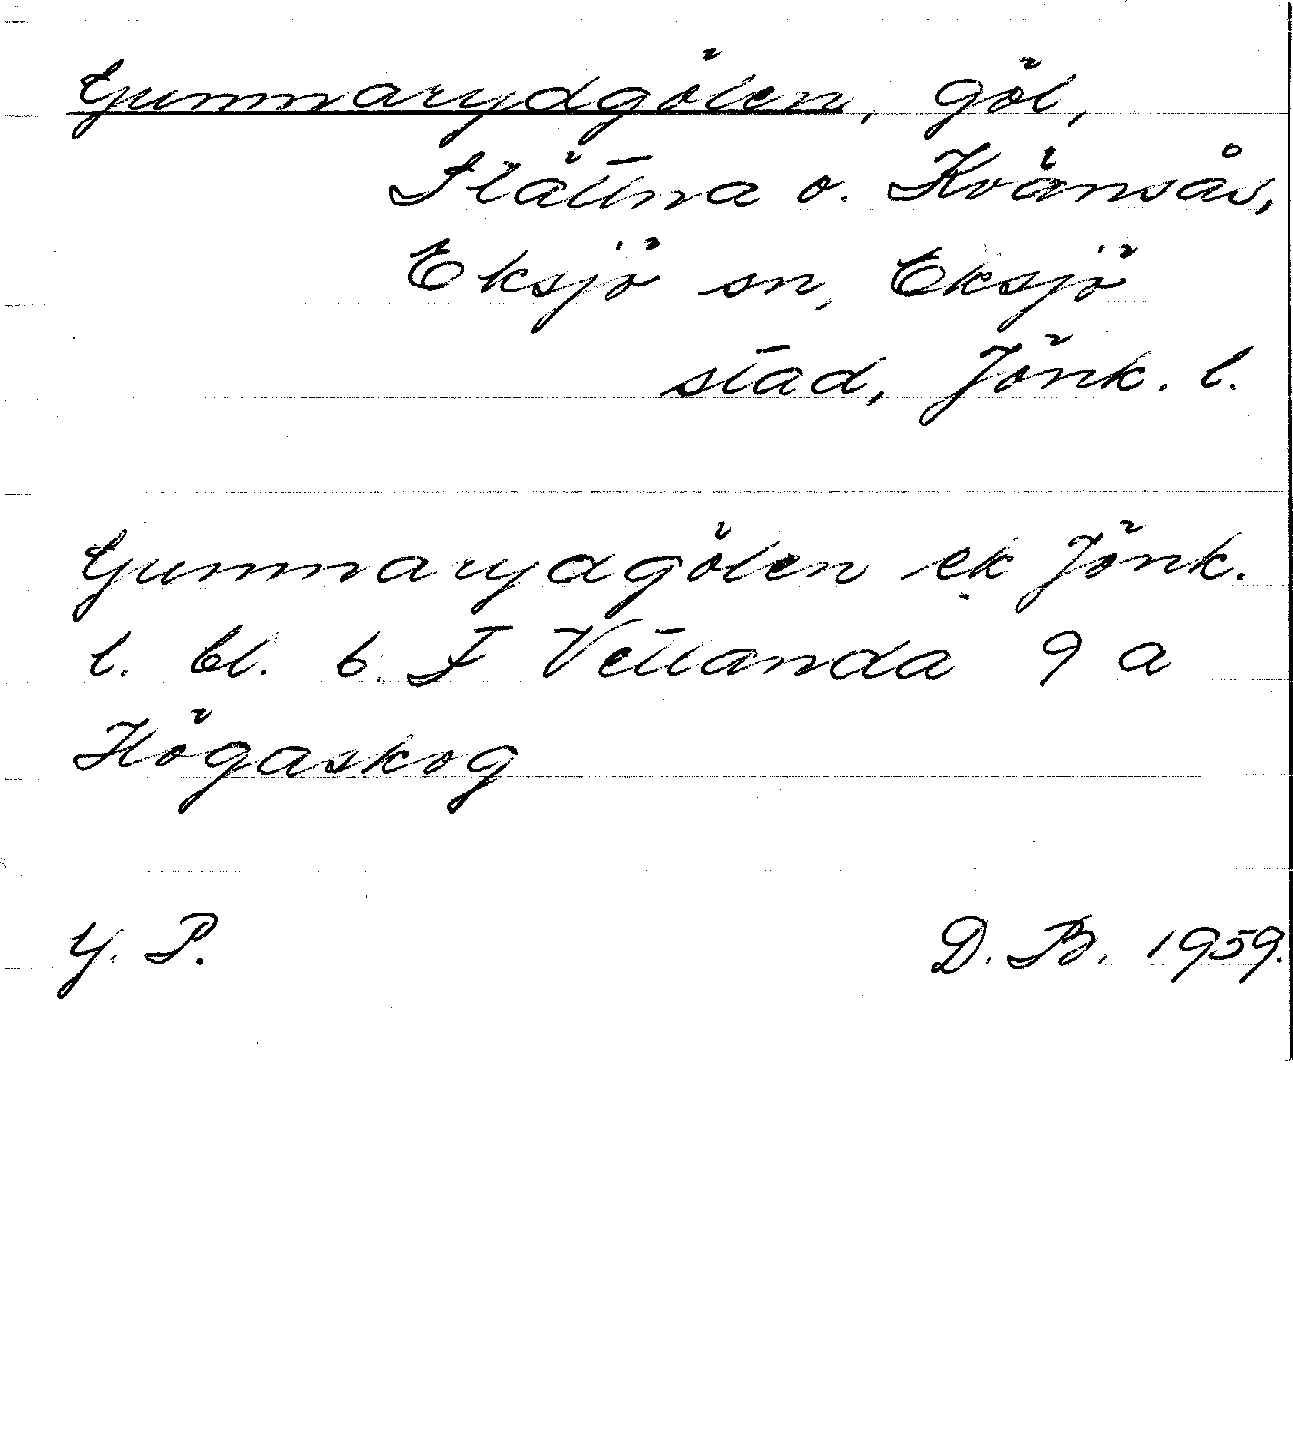 Gunnarydgölen, göl,
Slättna o. Kvänsås,
Eksjö sn, Eksjö
stad, Jönk. l.
Gunnarydgölen ek Jönk.
l. bl. 6. F Vetlanda 9 a
Högaskog
Y. P. D. B. 1959.